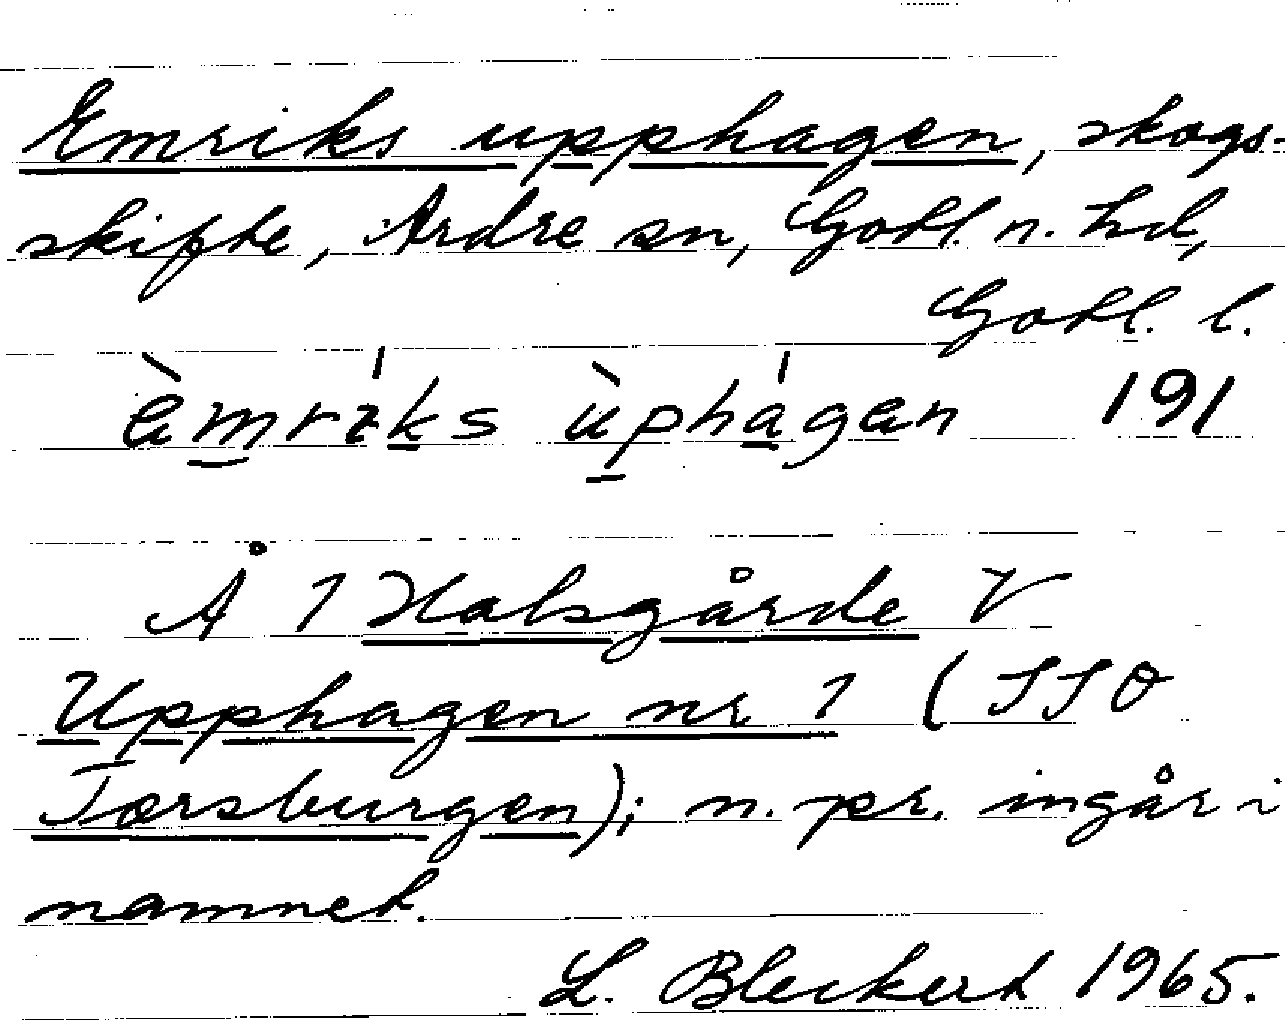 Emriks upphagen, skogs-
skifte, Ardre sn, Gotl. n. hd,
Gotl. l.
èmríks ùphágen 191
Å 1 Halsgårde V
Upphagen nr 1 (SSO
Torsburgen); n. pr. ingår i
namnet.
L. Bleckert 1965.